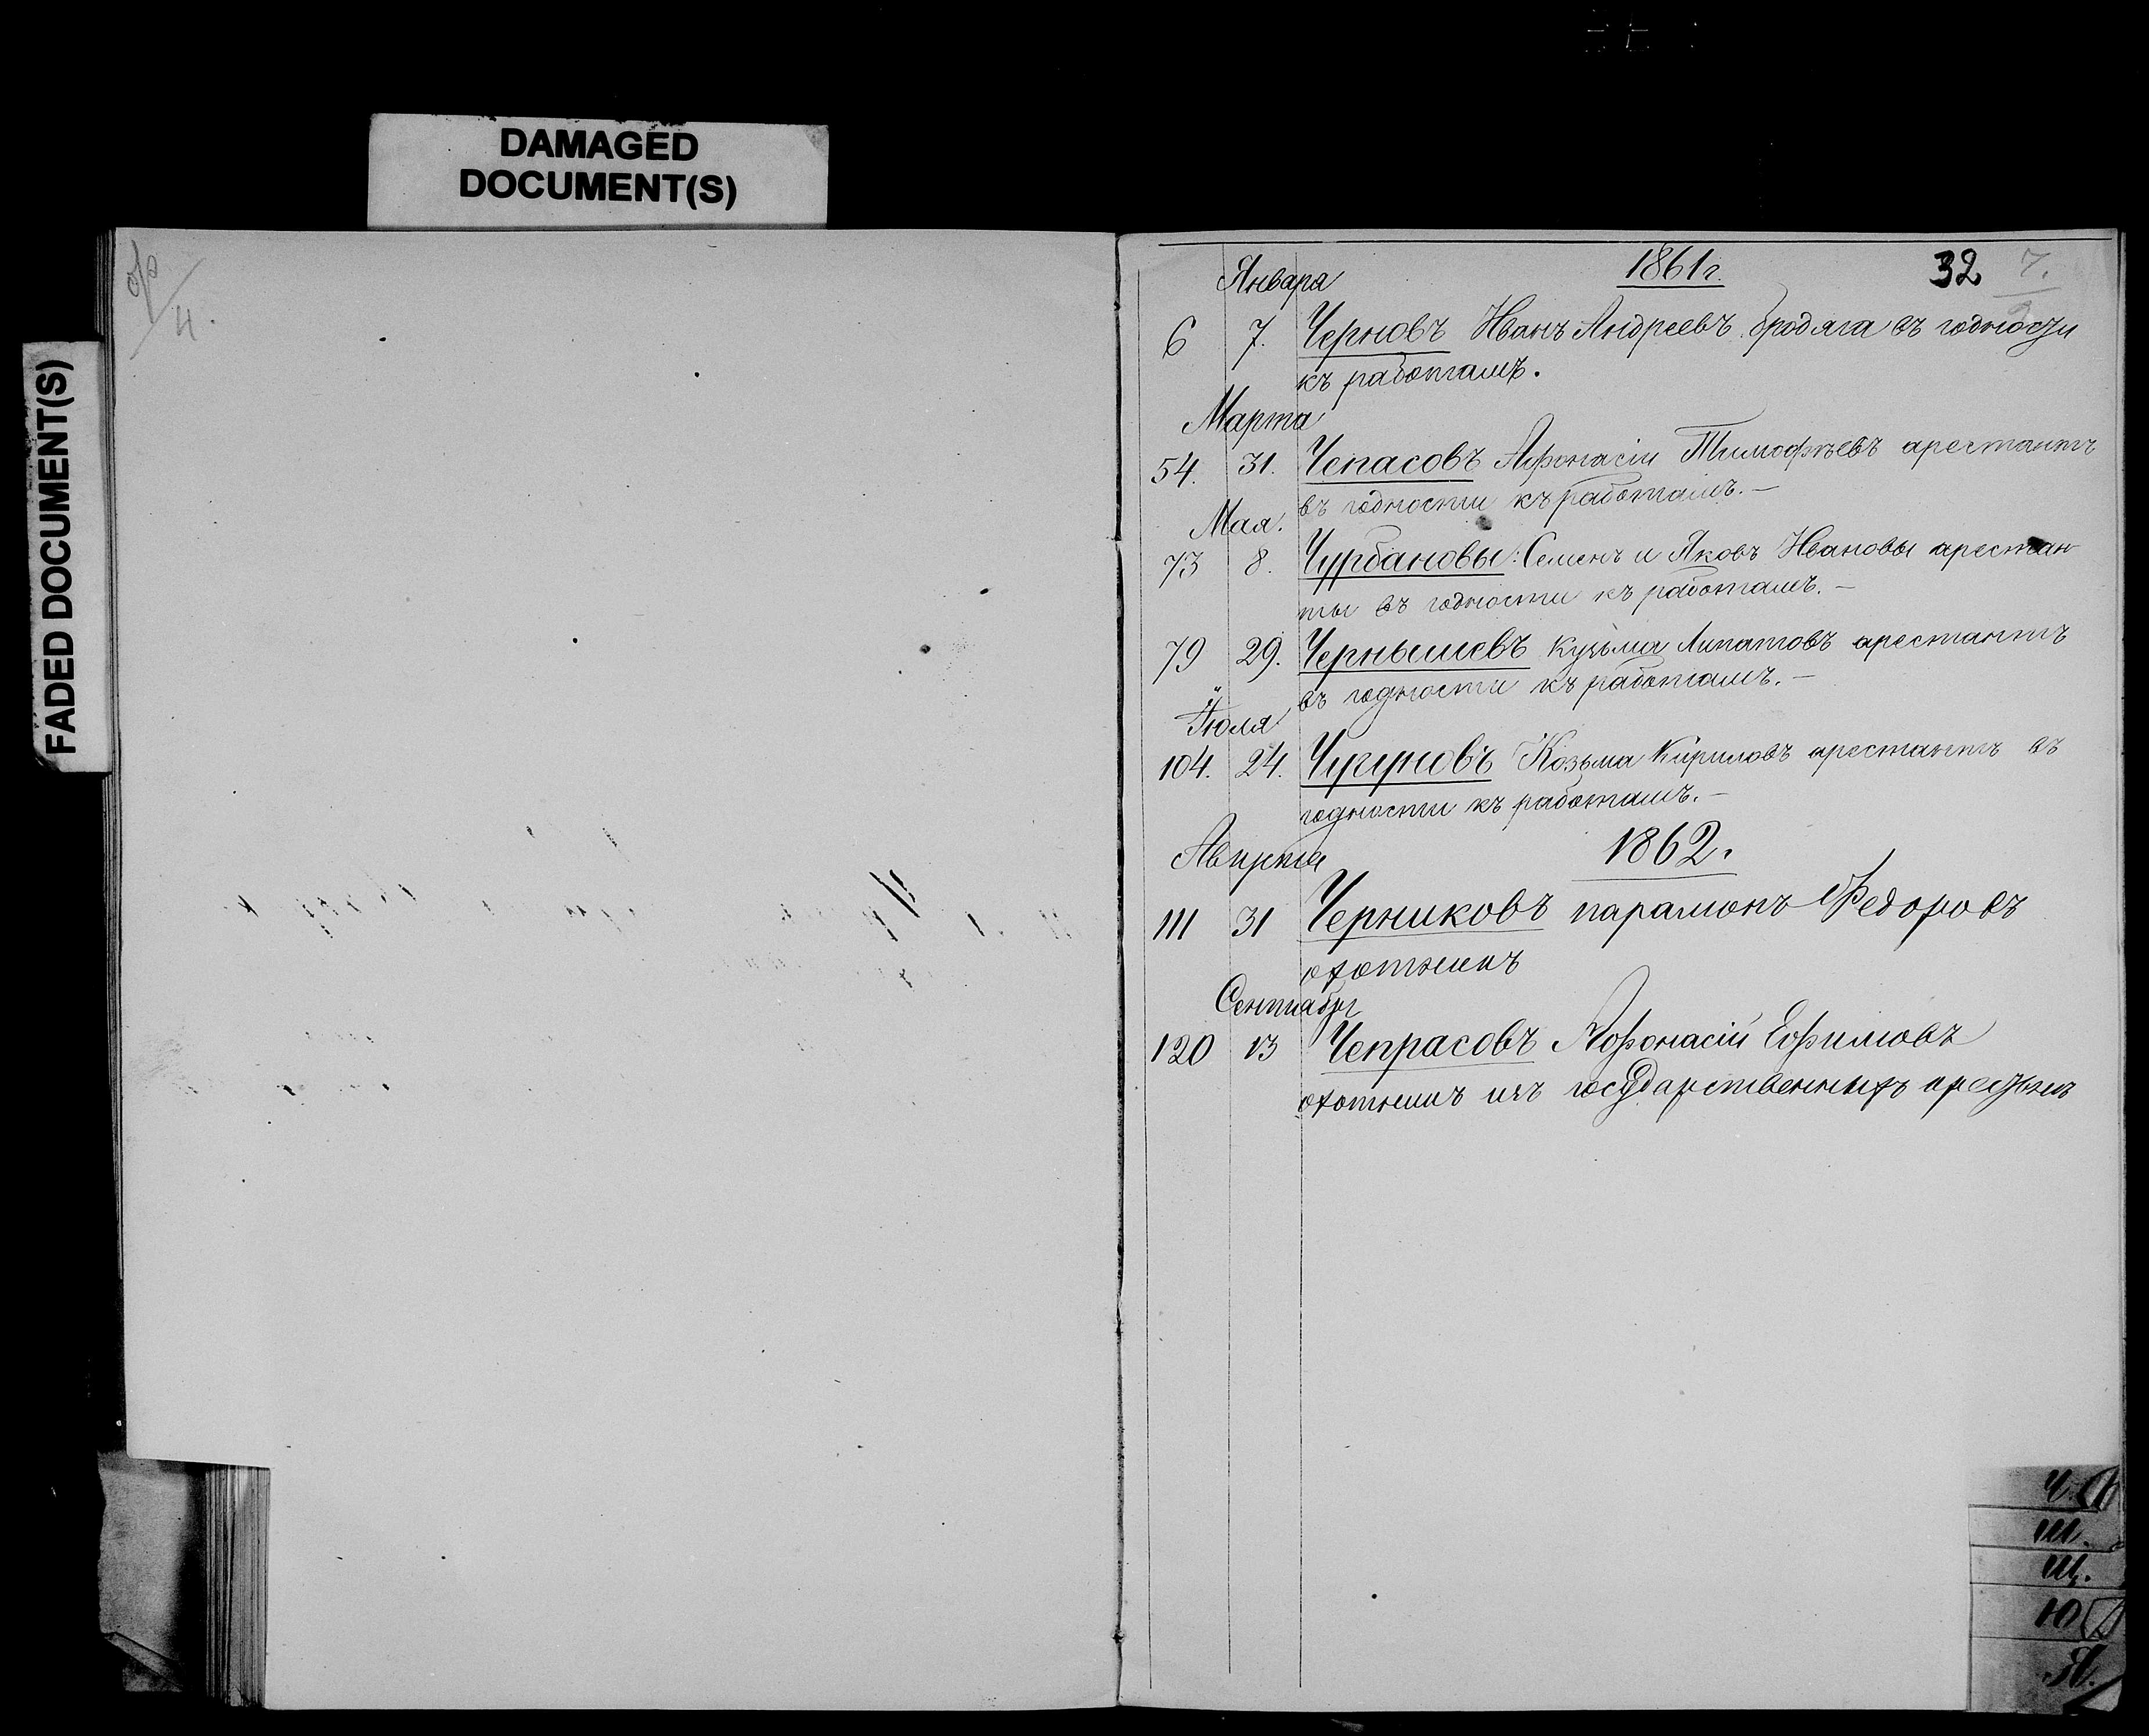 DAMAGED
DOCUMENT(S)
FADED DOCUMENT(S)
об
4.
1861 г.
32
7.
Января
6 7. Черновъ Иванъ Андреевъ бродяга въ годности
къ работамъ.
Марта
54. 31. Чепасовъ Афонасіи Тимофѣевъ арестантъ
въ годности къ работамъ. —
Мая.
73 8. Чурбановы: Семенъ и Яковъ Ивановы арестан
ты въ годности къ работамъ. —
79 29. Чернышевъ Кузьма Липатовъ арестантъ
въ годности къ работамъ. —
Іюля
104. 24. Чугуновъ Козьма Кириловъ арестантъ въ
годности къ работамъ. —
1862.
Августа
111 31 Черниковъ парамонъ Федоровъ
охотникъ
Сентября
120 13 Чепрасовъ Афонасій Ефимовъ
охотникъ изъ государственныхъ
Ч.
Ш.
Щ.
Ю
Я.